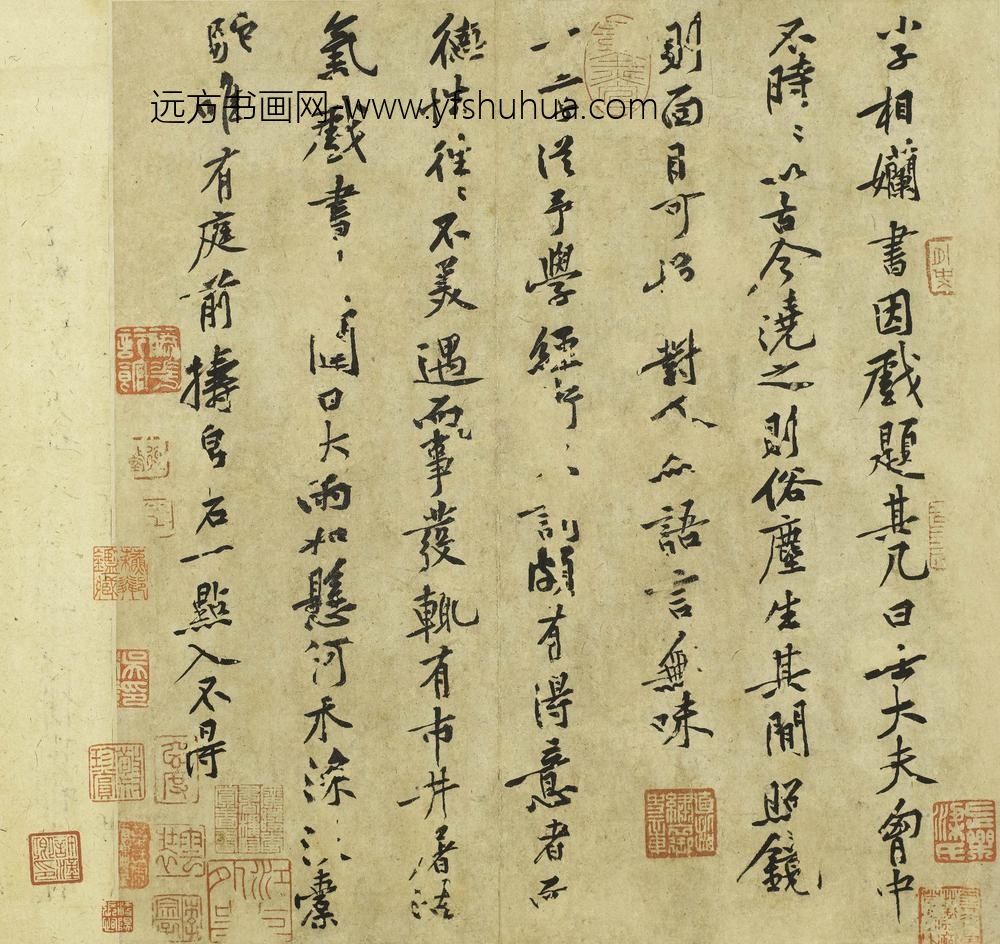 小子相嬾書因戲題其几曰士大夫胷中
不時〻以古今澆之則俗塵生其間照鏡
則面目可憎對人亦語言無味
一二子從予學經行〻訓頗有得意者而
德性往〻不美遇而事發輒有市井屠沽
氣戲書
閏日大雨如懸河禾深
駝唯有庭前擣帛石一點入不得
远方书画网 www.yfshuhua.com